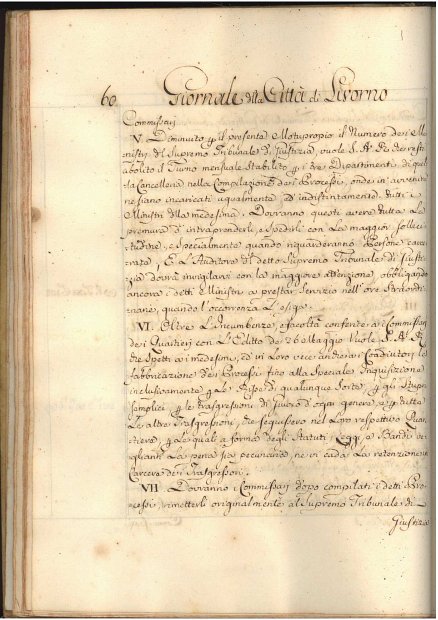 60 Giornale della Città di Livorno
Commissarj
V. Diminuito il presente Motuproprio il Numero dei Mi-
nistri del Supremo Tribunale di Giustizia, vuole S. A. R. che resti
abolito il Turno mensuale stabilito i tre Dipartimenti di quel-
la Cancelleria nella Compilazione dei Processi, onde in avvenire
ne siano incaricati ugualmente, ed indistintamente tutti i
Ministri della medesima. Dovranno questi avere tutta la
premura d'intraprenderli, e spedirli con la maggior solleci-
tudine, e specialmente quando riguarderanno Persone carce-
rate, E l'Auditore di detto Supremo Tribunale di Giusti-
zia dovrà invigilarvi con la maggiore attenzione, obbligando
ancora i detti Ministri a prestar servizio nell'ore straordi-
narie, quando l'occorrenza l'esiga.
VI. Oltre l'Incumbenze, e facoltà conferite ai Commissarj
dei Quartieri con l'Editto de 26 Maggio Vuole S. A. R.
che spetti ai medesimi, ed in loro vece anche ai Coadiutori la
fabbricazione dei Processi fino alla Speciale Inquisizione
inclusivamente le Risse di qualunque Sorte, gli Stupri
semplici, le trasgressioni di Giuoco d'ogni genere, e tutte
le altre Trasgressioni, che seguissero nel Loro respettivo Quar-
tiere, le quali a forma degli Statuti, Leggi, e Bandi ve-
glianti la pena sia pecuniaria, ne vi cada la retenzione in
Carcere dei Trasgressori.
VII. Dovranno i Commissarj dopo compilati i detti Pro-
cessi, rimetterli originalmente al Supremo Tribunale di
Giustizia